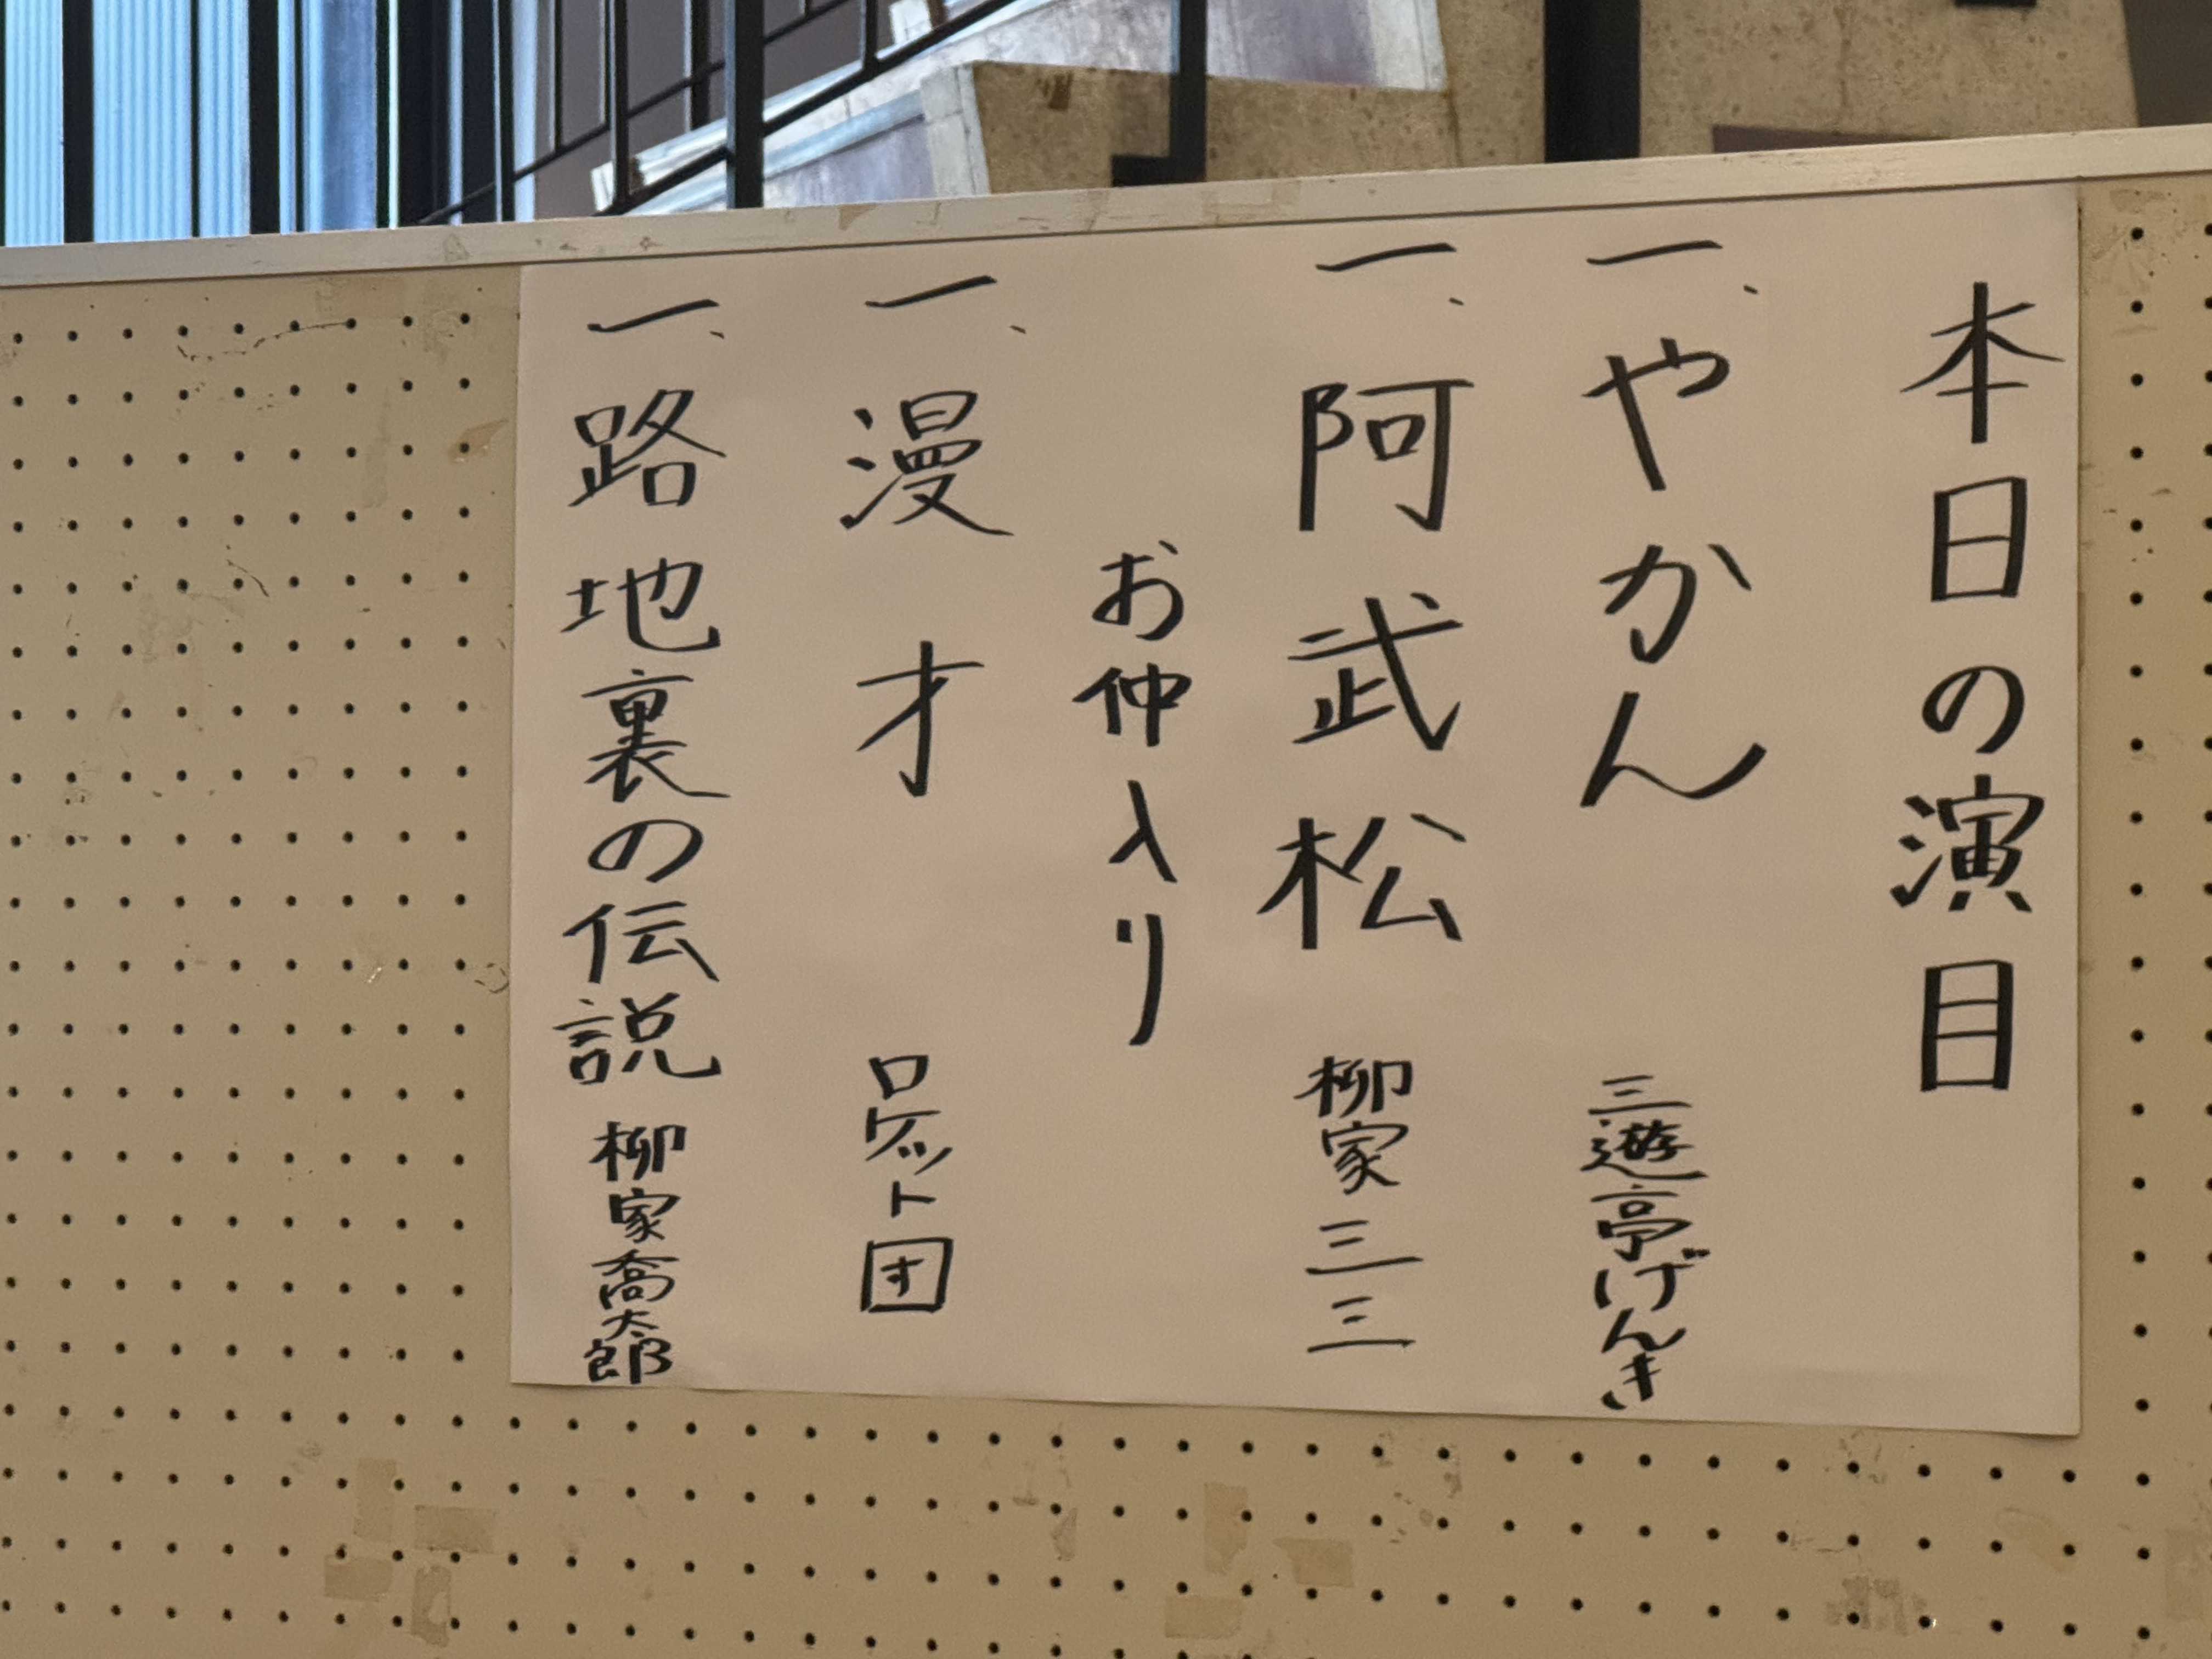 本日の演目
一、やかん 三遊亭げんき
一、阿武松 柳家三三
お仲入り
一、漫才 ロケット団
一、路地裏の伝説 柳家喬太郎